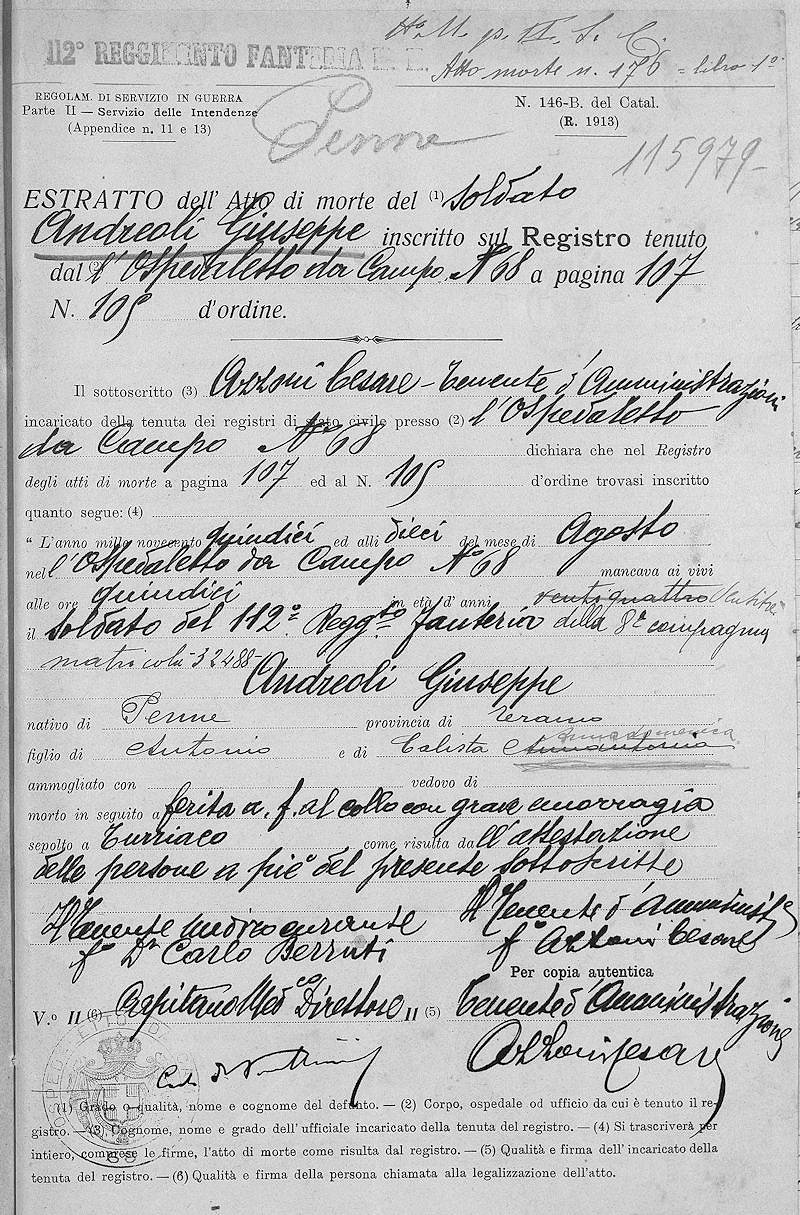 112° REGGIMENTO FANTERIA
Atto morte n. 176 = libro 1°
REGOLAM. DI SERVIZIO IN GUERRA
Parte II — Servizio delle Intendenze
(Appendice n. 11 e 13)
N. 146-B. del Catal.
(R. 1913)
Penne
115979-
ESTRATTO dell'Atto di morte del (1) soldato
Andreoli Giuseppe inscritto sul Registro tenuto
dal (2) l'Ospedaletto da Campo N° 68 a pagina 107
N. 105 d'ordine.
Il sottoscritto (3) Azzoni Cesare - Tenente d'Amministrazione
incaricato della tenuta dei registri di stato civile presso (2) l'Ospedaletto
da Campo N° 68 dichiara che nel Registro
degli atti di morte a pagina 107 ed al N. 105 d'ordine trovasi inscritto
quanto segue: (4)
" L'anno mille novecento quindici ed alli dieci del mese di Agosto
nel l'Ospedaletto da Campo N° 68 mancava ai vivi
alle ore quindici in età d'anni ventiquattro Ventitre
il soldato del 112° Regg.to fanteria della 8ª compagnia
matricola 32488-
Andreoli Giuseppe
nativo di Penne provincia di Teramo
figlio di Antonio e di Calista
ammogliato con vedovo di
morto in seguito a ferita a. f. al collo con grave emorragia
sepolto a Turriaco come risulta dall'attestazione
delle persone a piè del presente sottoscritte
Il Tenente medico curante
f° Dr Carlo Berruti
Il Tenente d'Amminist.e
f° Azzoni Cesare
Per copia autentica
V.° Il (6) Capitano Med co Direttore
Il (5) Tenente d'Amministrazione
Azzoni Cesare
(1) Grado o qualità, nome e cognome del defunto. — (2) Corpo, ospedale od ufficio da cui è tenuto il re-
gistro. — (3) Cognome, nome e grado dell'ufficiale incaricato della tenuta del registro. — (4) Si trascriverà per
intiero, comprese le firme, l'atto di morte come risulta dal registro. — (5) Qualità e firma dell'incaricato della
tenuta del registro. — (6) Qualità e firma della persona chiamata alla legalizzazione dell'atto.